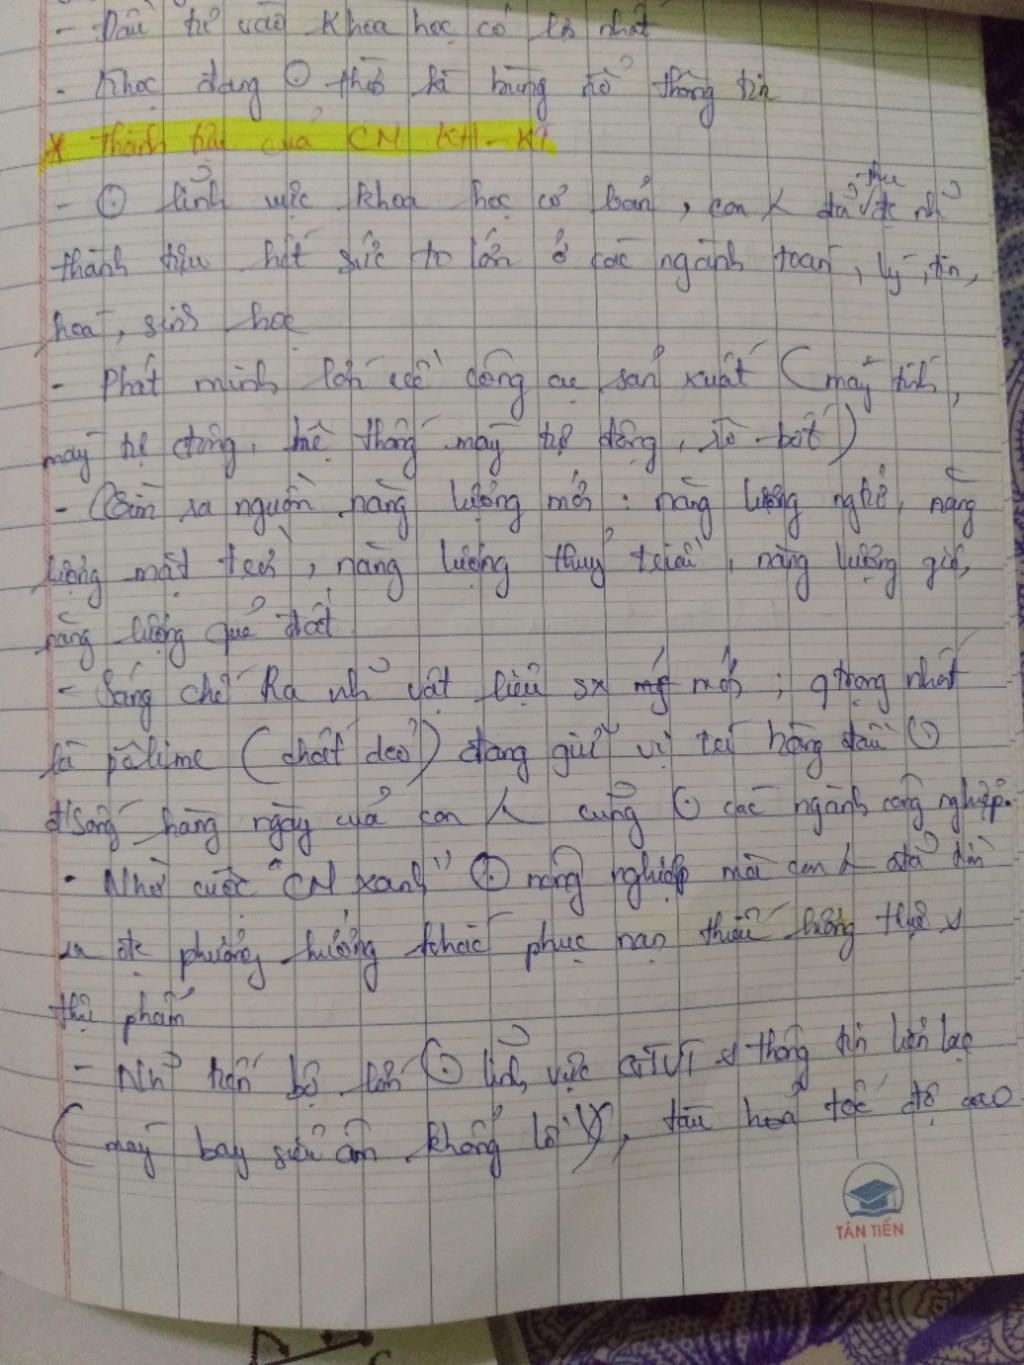 - Đầu tư vào khoa học có là nhất
- Khọc đang ⊙ thời kì bùng nổ thông tin
* Thành tựu của CM KH-KT
- ⊙ lĩnh vực khoa học cơ bản, con λ đã thu đc nh~
thành tựu hết sức to lớn ở các ngành toán, lý, tin,
hoá, sinh học
- Phát minh lớn về công cụ sản xuất (máy tính,
máy tự động, hệ thống máy tự động, rô-bốt)
- (Tìm ra nguồn năng lượng mới: năng lượng ng.tử, năng
lượng mặt trời, năng lượng thuỷ triều, năng lượng gió,
năng lượng quả đất
- Sáng chế ra nh~ vật liệu sx mới; q trọng nhất
là pôlime (chất dẻo) đang giữ vị trí hàng đầu ⊙
đ'sống hàng ngày của con λ cũng ⊙ các ngành công nghiệp.
- Nhờ cuộc "CM xanh" ⊙ nông nghiệp mà con λ đã tìm
ra đc phương hướng khắc phục nạn thiếu lương thực,
thực phẩm
- Nh~ tiến bộ lớn ⊙ lĩnh vực GTVT thông tin liên lạc
(máy bay siêu âm khổng lồ), tàu hoả tốc độ cao
TÂN TIẾN